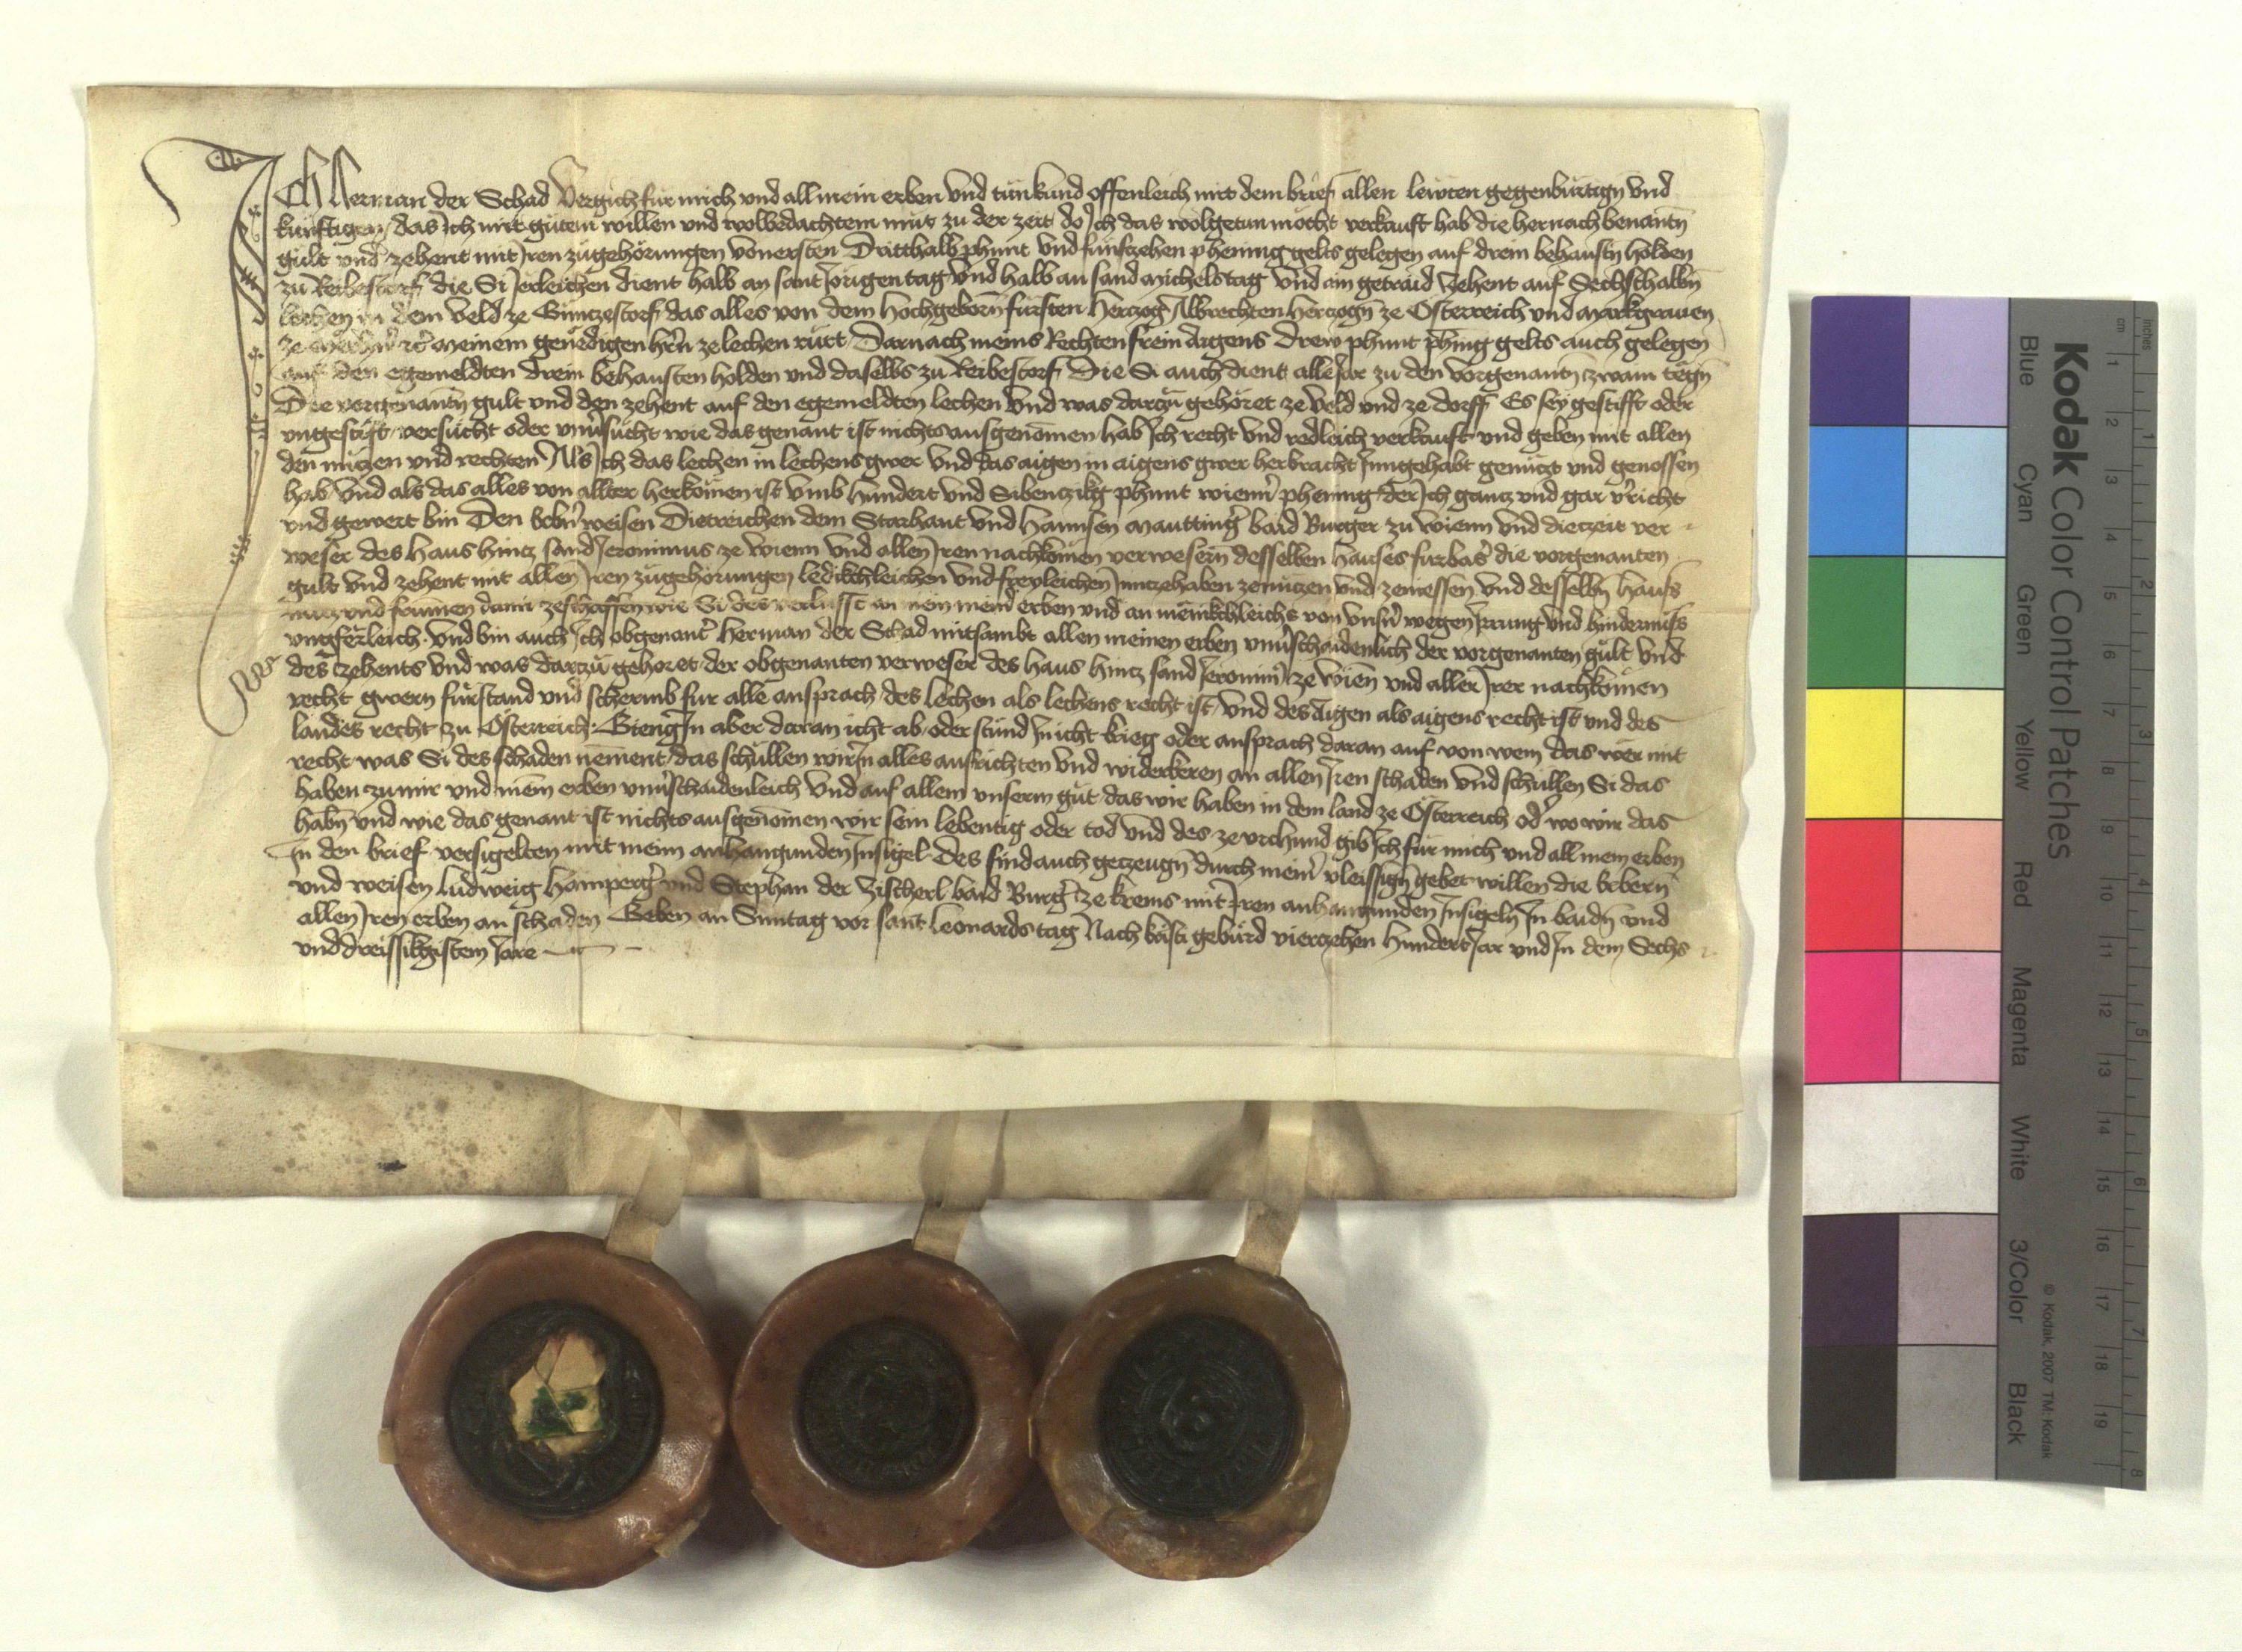 Ich Herman der Schad Vergich für mich und all mein erben Und tün kund offenleich mit dem brief allen lewten gegenbürtign Und
künftigen, das Ich mit gutem willen und wolbedachtem mut zu der zeit do Ich das wolgetun mocht verkauft hab die hernach benantn̄
gült und zehent mit Iren zugehörungen Von ersten Dritthalb phunt Und fünfzehen phening gelts gelegen auf drein behaustn holden
zu Reibestorf die Si Jerleichen dient halb an sant Jorigen tag Und halb an sand Michels tag Und ain getraid Zehent auf Sechsthalbn̄
lechen in dem Veld ze Guntzestorf das alles von dem Hochgeborn̄ fürsten Herzog Albrechten Herzogn̄ ze Österreich und Markgrauen
ze meinem genedigen hern ze lechen rürt Darnach meins Rechten frein aigens Drew phunt phing gelts auch gelegen
auf den egemeldten drein behausten holden und daselbs zu Reibestorf Die Si auch dient alle Jar zu den vorgenantn̄ zwain tegn̄
Die vorgenantn̄ gült und den zehent auf den egemeldten lechen Und was darzu gehöret ze veld und ze dorff Es sey gestifft oder
ungestift versücht oder unu'sücht wie das genant ist nichts ausgenomen hab Ich recht Und redleich verkauft und geben mit allen
den nützen und rechten Als Ich das lechen in lechensgwer Und das aigen in aigensgwer herbracht Inngehabt genützt und genossen
hab Und als das alles von allter herkömen ist Umb Hundert und Sibenczikg phunt wienn' phening der Ich gancz und gar v'richt
und gewert bin Den Erbn' weisen Dietreichen dem Starhant und Hannsen Mautting' baid Burger zu wienn Und die zeit ver-
weser des Haus hincz sand Jeronimus ze Wienn Und allen Iren nachkömen verwesern desselben Hauses fürbas' die vorgenanten
gült Und zehent mit allen Iren zugehörungen ledikchleichen Und freyleichen Inntzehaben zenüczen und zeniessen Und desselbn̄ Hauss
nutz und frumen damit zeschaffen wie Si des verlusst an mein meine' erben und an menikchleichs von Uns'n wegen Irrung Und hindernüss
ungferleich. Und bin auch Ich obgenant' Herman der Schad mitsambt allen meinen erben unu'schaidenlich der vorgenanten gült Und
des zehents Und was darzu gehoret der obgenanten verweser des Haus hincz sand Jeronim' ze wienn̄ Und aller Irer nachkömen
recht gwern fürstand und schermb für alle ansprach des lechen als lechens recht ist, Und des Aigen als aigens recht ist und des
landes recht zu Österreich. Gieng In aber daran icht ab oder stünd In icht krieg oder ansprach daran auf von wem das wer mit
recht was Si des schaden nement das schüllen wir In alles ausrichten Und widerkeren an allen Iren schaden Und schüllen Si das
haben zu mir und mein erben unu'schaidenleich Und auf allem unserm güt das wir haben in dem land ze Österreich od' wo wir das
habn̄ Und wie das genant ist nichts ausgenomen wir sein lebentig oder tod Und des ze urchund gib Ich für mich und all mein erben
In den brief versigelten mit meim anhangunden Insigel Des sind auch geczeugn̄ durch mein' vleissign gebet willen die Erbern̄
und weisen Ludweig Hamperg' und Stephan der Zischerl baid Burg' ze Krems mit Iren anhangunden Insigeln In baidn̄ und
allen Iren erben an schaden Geben an Suntag vor sant Leonards tag Nach krists gebürd vierczehen Hundert Jar und In dem Sechs
und dreissikgistem Jare
Kodak Color Control Patches
Blue Cyan Green Yellow Red Magenta White 3/Color Black
© Kodak, 2007 TM: Kodak
cm 1 2 3 4 5 6 7 8 9 10 11 12 13 14 15 16 17 18 19
inches 1 2 3 4 5 6 7 8